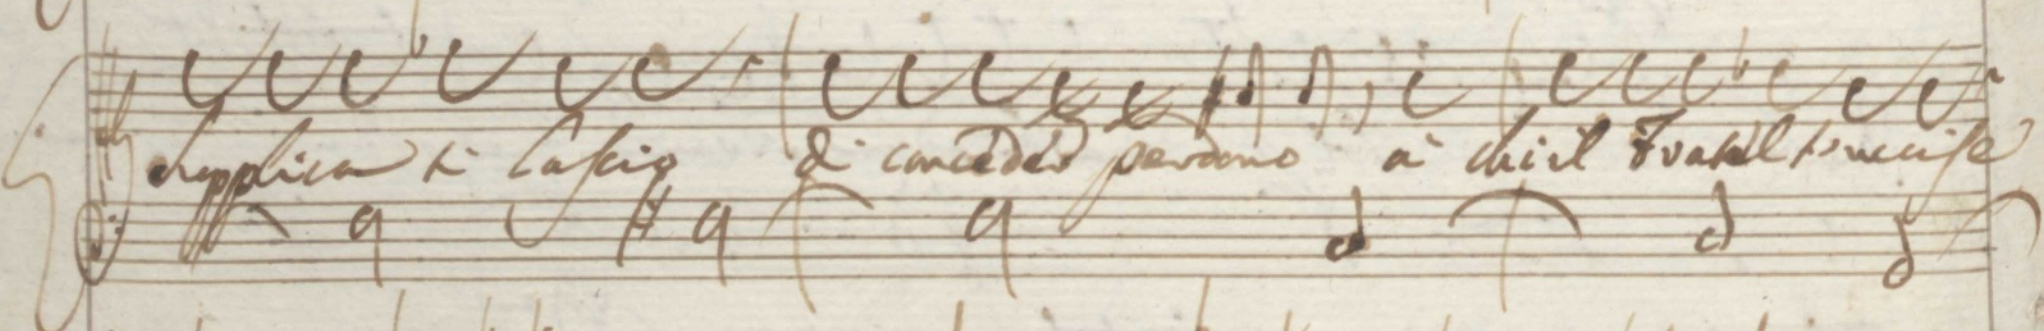 supplica ti lascio di conceder perdono a chi il fratel t'uccise